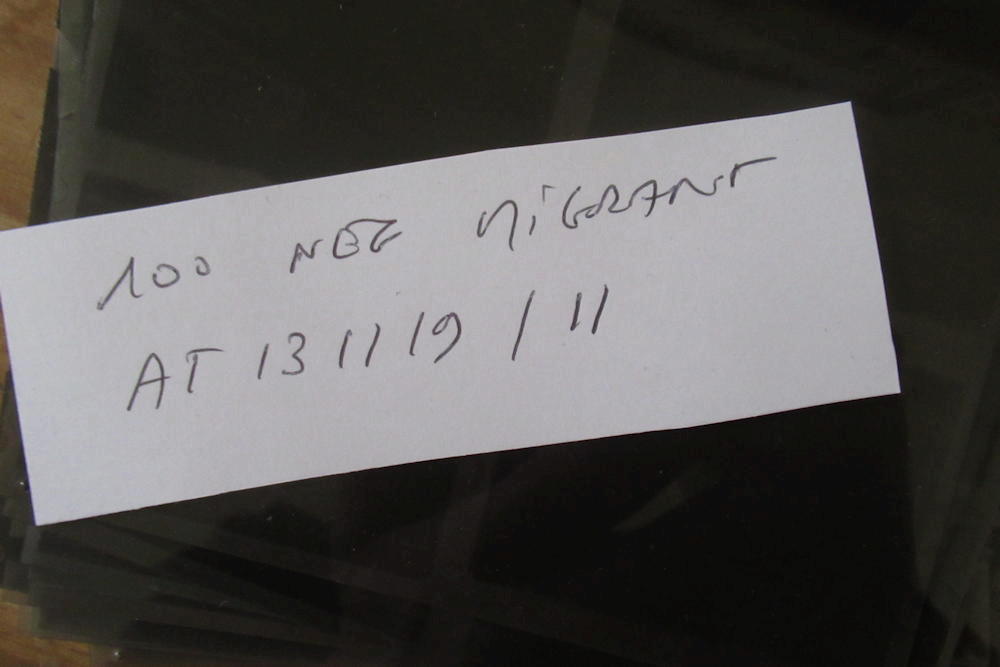 100 NEG MiGRANT
AT 13 11 19 / 11